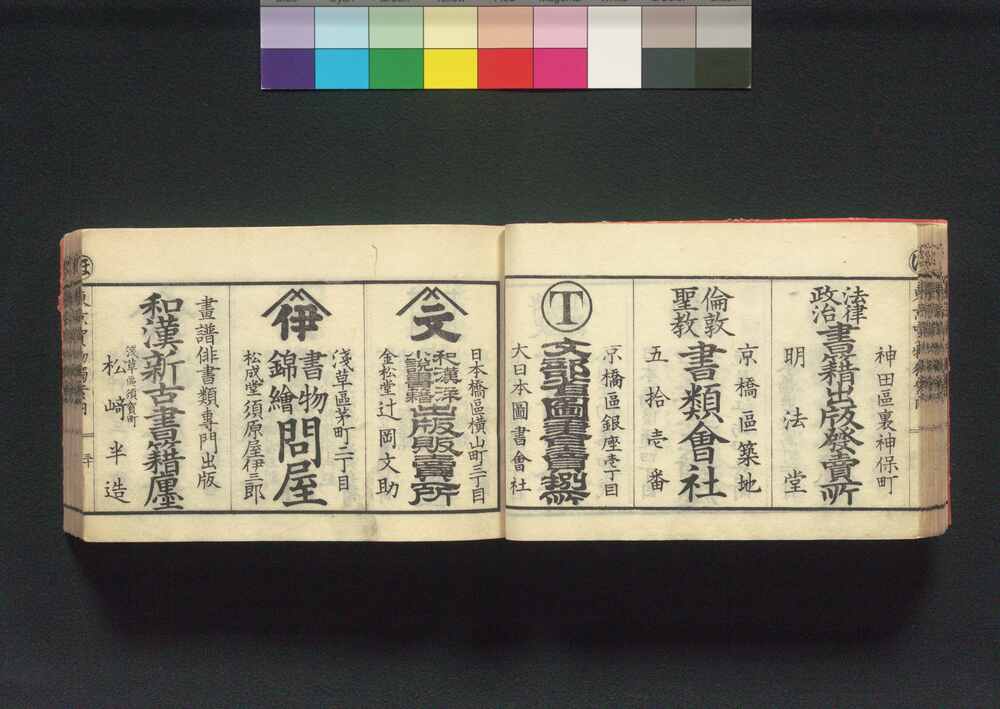 神田區裏神保町
法律
政治
書籍出版發賣所
明法堂
京橋區築地
倫敦
聖教
書類會社
五拾壱番
京橋區銀座壱丁目
T
文部省圖書賣捌所
大日本圖書會社
日本橋區橫山町三丁目
文
和漢洋
小説書籍
出版販賣所
金松堂辻岡文助
淺草區茅町二丁目
伊
書物
錦繪
問屋
松成堂須原屋伊三郎
畫譜俳書類專門出版
和漢新古書籍屋
淺草區須賀町
松崎半造
ほ